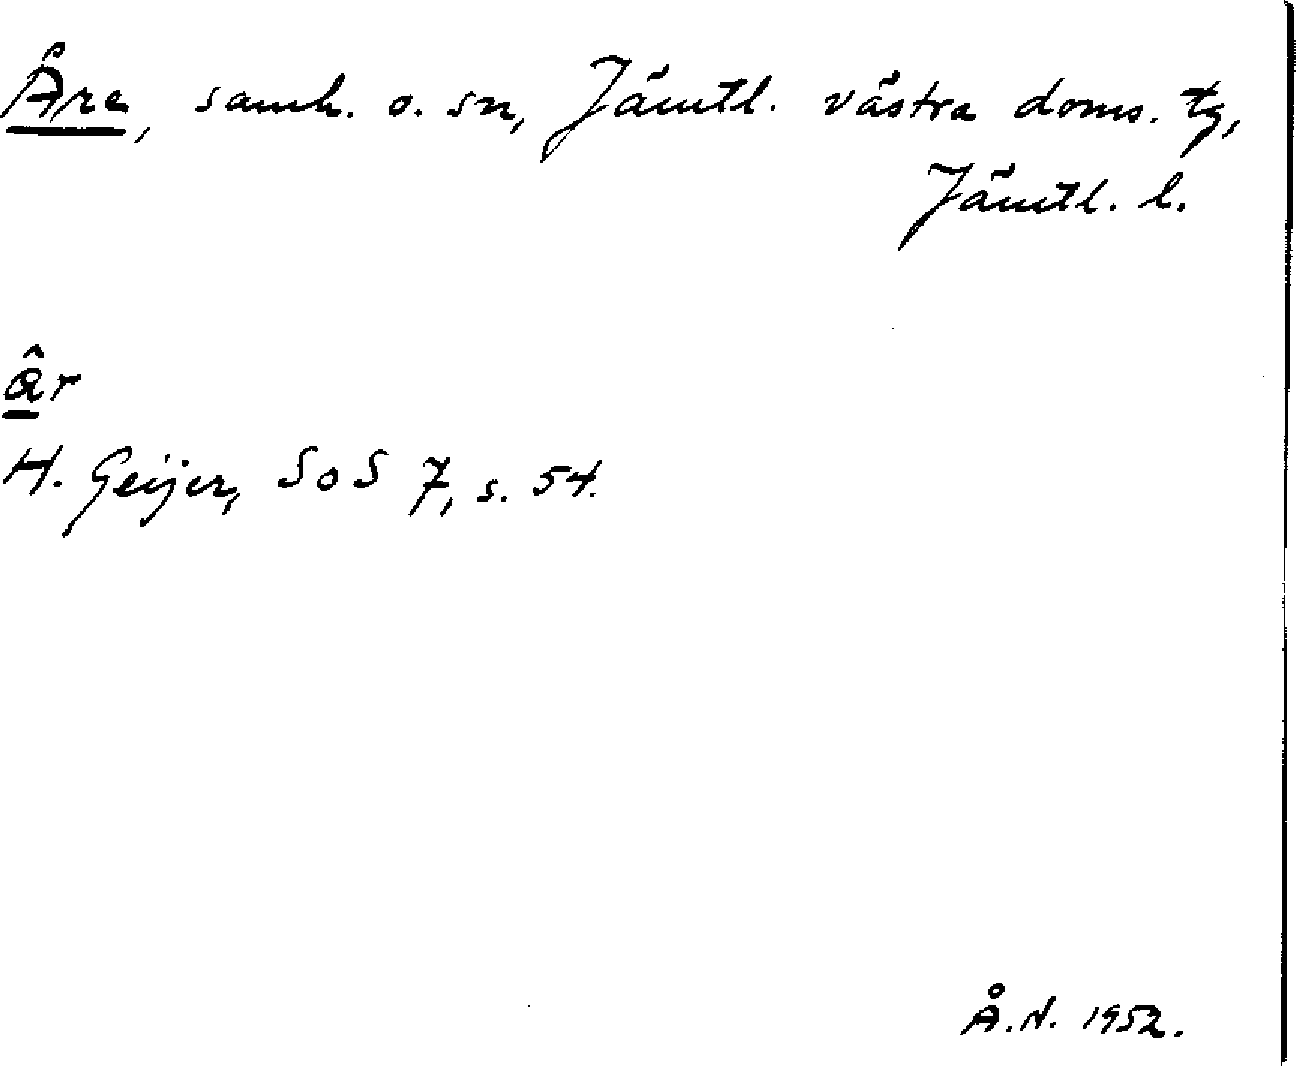 Åre, samh. o. sn, Jämtl. västra doms. tg,
Jämtl. l.
âr
H. Geijer, SoS 7, s. 54.
Å. N. 1952.